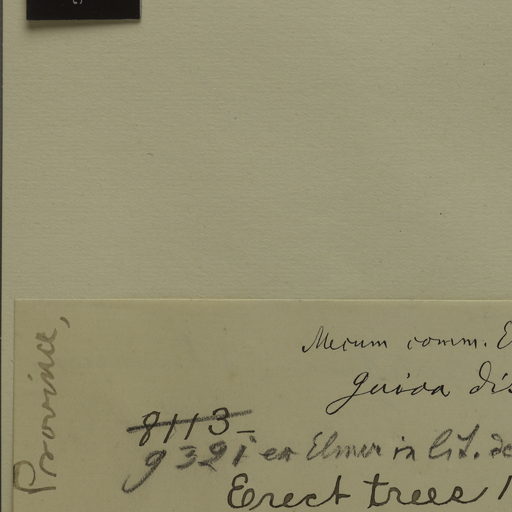 Province,
Mecum comm. E
Guioa dis
8113
9391 ex Elmer in lit. de
Erect trees 1